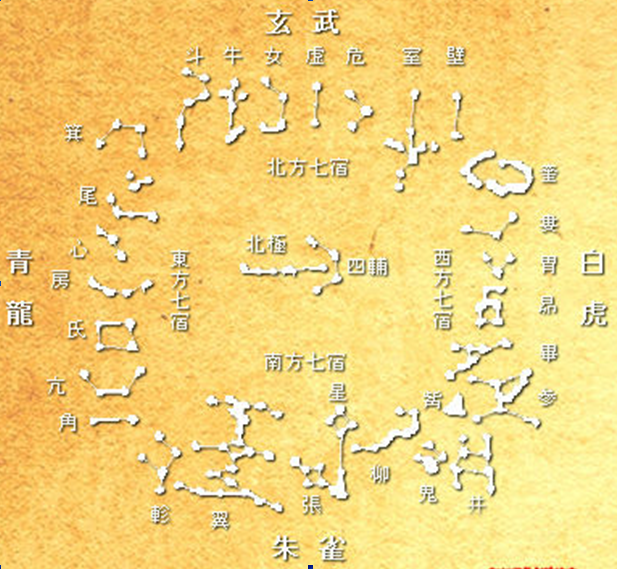 玄武
斗 牛 女 虛 危 室 壁
北方七宿
箕
尾
心
房
氐
亢
角
青龍
東方七宿
北極
四輔
西方七宿
白虎
奎
婁
胃
昴
畢
參
觜
南方七宿
星
軫
翼
張
柳
鬼
井
朱雀